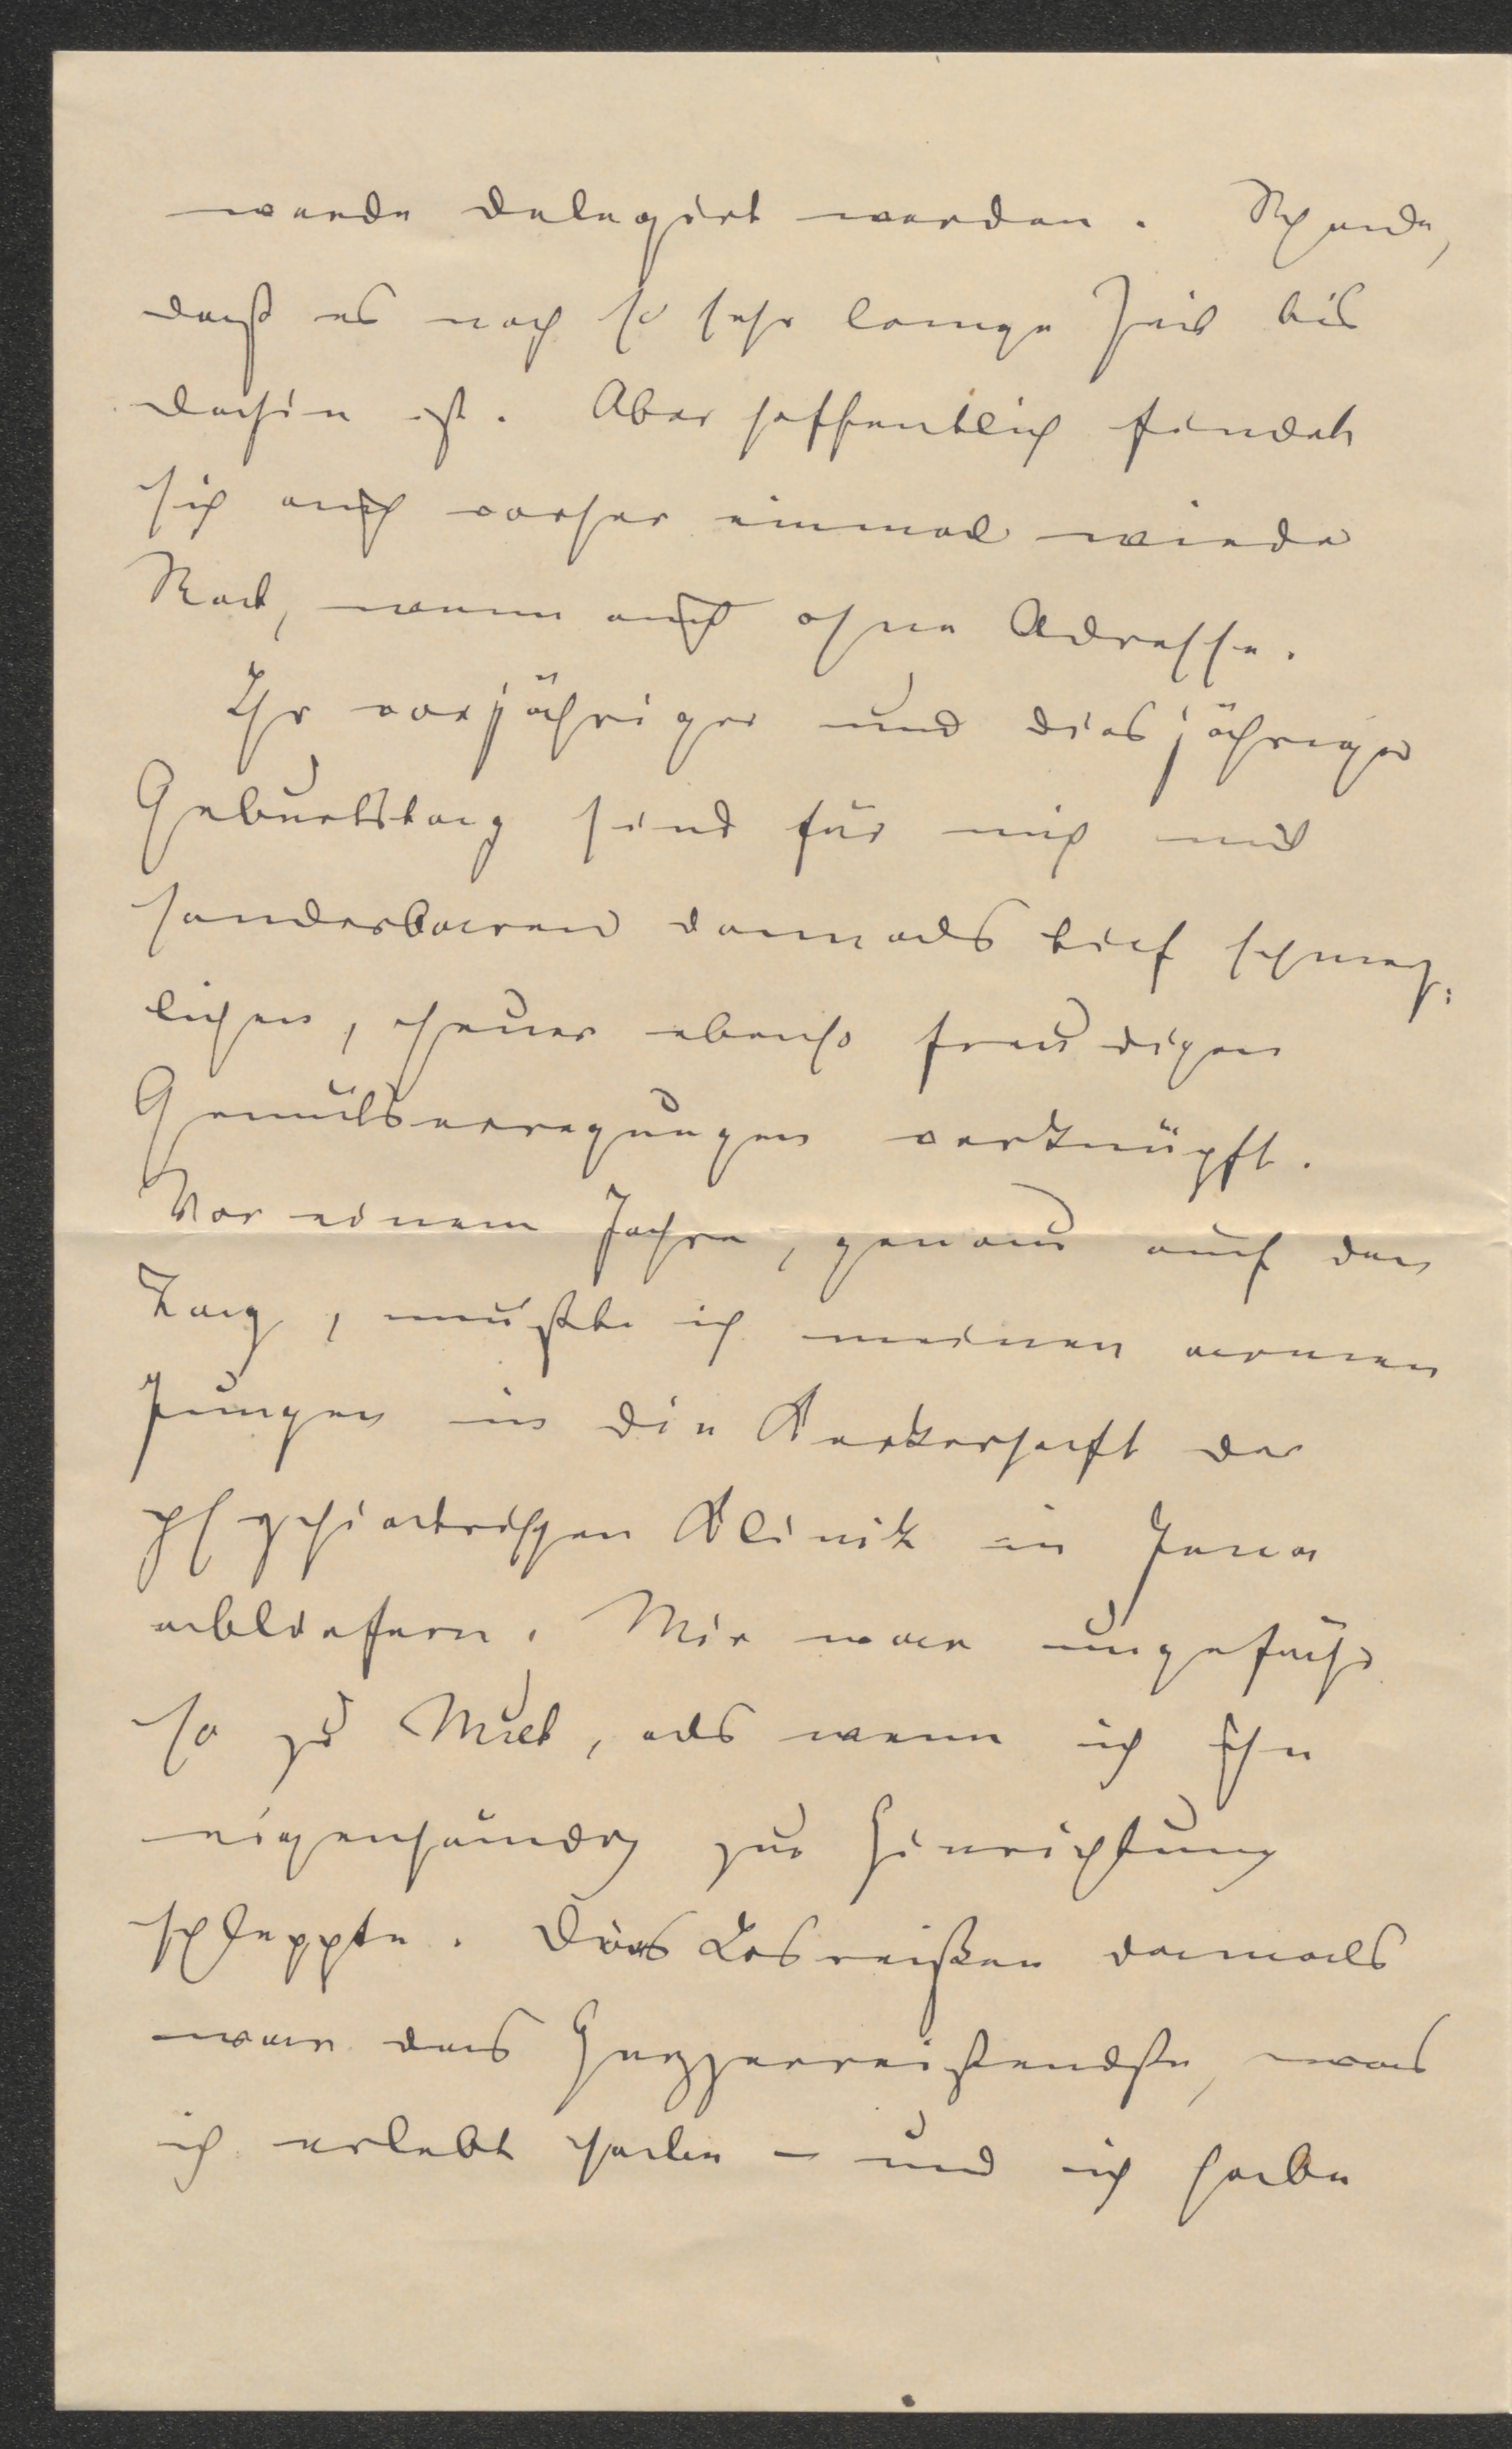 werde delegirt werden. Schade,
daß es noch so sehr lange Zeit bis
dahin ist. Aber hoffentlich findet
sich auch vorher einmal wieder
Rat, wenn auch ohne Adresse.
Ihr vorjähriger und diesjähriger
Geburtstag sind für mich mit
sonderbaren damals tief schmerz-
lichen, heuer ebenso freudigen
Gemütserregungen verknüpft.
Vor einem Jahre, genau auf den
Tag, mußte ich meinen armen
Jungen in die Kerkerhaft der
psychiatrischen Klinik in Jena
abliefern. Mir war ungefähr
so zu Mut, als wenn ich ihn
eigenhändig zur Hinrichtung
schleppte. Das Losreißen damals
war das Herzzerreißendste, was
ich erlebt habe – und ich habe